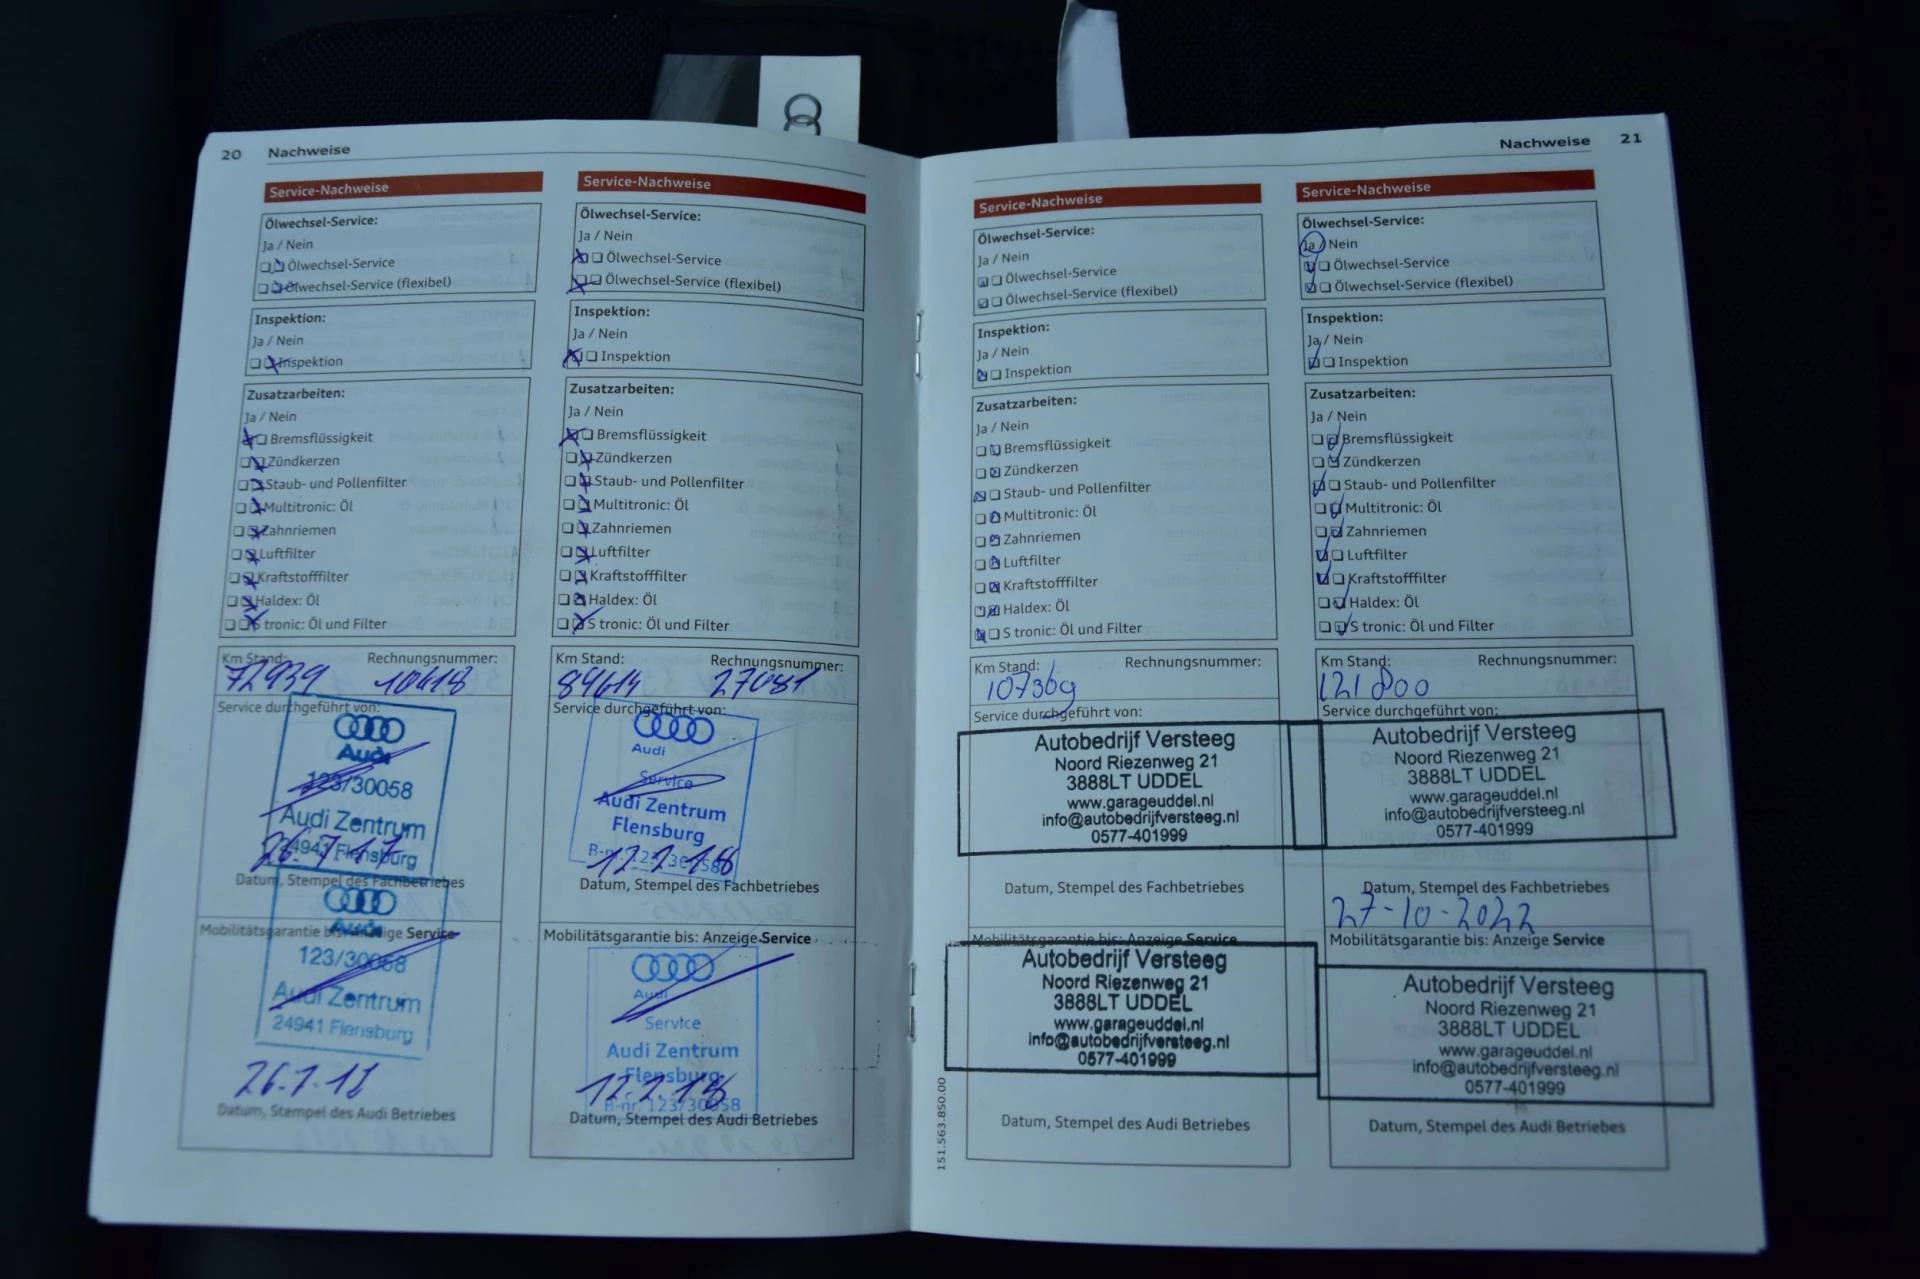 20 Nachweise
Service-Nachweise
Ölwechsel-Service:
Ja / Nein
Ölwechsel-Service
Ölwechsel-Service (flexibel)
Inspektion:
Ja / Nein
Inspektion
Zusatzarbeiten:
Ja / Nein
Bremsflüssigkeit
Zündkerzen
Staub- und Pollenfilter
Multitronic: Öl
Zahnriemen
Luftfilter
Kraftstofffilter
Haldex: Öl
S tronic: Öl und Filter
Km Stand: Rechnungsnummer:
72939 10418
Service durchgeführt von:
Audi
123/30058
Audi Zentrum
24941 Flensburg
26.7.17
Datum, Stempel des Fachbetriebes
Mobilitätsgarantie bis: Anzeige Service
Audi
123/30058
Audi Zentrum
24941 Flensburg
26.7.18
Datum, Stempel des Audi Betriebes
Service-Nachweise
Ölwechsel-Service:
Ja / Nein
Ölwechsel-Service
Ölwechsel-Service (flexibel)
Inspektion:
Ja / Nein
Inspektion
Zusatzarbeiten:
Ja / Nein
Bremsflüssigkeit
Zündkerzen
Staub- und Pollenfilter
Multitronic: Öl
Zahnriemen
Luftfilter
Kraftstofffilter
Haldex: Öl
S tronic: Öl und Filter
Km Stand: Rechnungsnummer:
89614 27081
Service durchgeführt von:
Audi
Service
Audi Zentrum
Flensburg
B-nr. 123/30058
12.2.18
Datum, Stempel des Fachbetriebes
Mobilitätsgarantie bis: Anzeige Service
Audi
Service
Audi Zentrum
Flensburg
B-nr. 123/30058
12.2.18
Datum, Stempel des Audi Betriebes
Nachweise 21
Service-Nachweise
Ölwechsel-Service:
Ja / Nein
Ölwechsel-Service
Ölwechsel-Service (flexibel)
Inspektion:
Ja / Nein
Inspektion
Zusatzarbeiten:
Ja / Nein
Bremsflüssigkeit
Zündkerzen
Staub- und Pollenfilter
Multitronic: Öl
Zahnriemen
Luftfilter
Kraftstofffilter
Haldex: Öl
S tronic: Öl und Filter
Km Stand: Rechnungsnummer:
107369
Service durchgeführt von:
Autobedrijf Versteeg
Noord Riezenweg 21
3888LT UDDEL
www.garageuddel.nl
info@autobedrijfversteeg.nl
0577-401999
Datum, Stempel des Fachbetriebes
Mobilitätsgarantie bis: Anzeige Service
Autobedrijf Versteeg
Noord Riezenweg 21
3888LT UDDEL
www.garageuddel.nl
info@autobedrijfversteeg.nl
0577-401999
Datum, Stempel des Audi Betriebes
151.563.850.00
Service-Nachweise
Ölwechsel-Service:
Ja / Nein
Ölwechsel-Service
Ölwechsel-Service (flexibel)
Inspektion:
Ja / Nein
Inspektion
Zusatzarbeiten:
Ja / Nein
Bremsflüssigkeit
Zündkerzen
Staub- und Pollenfilter
Multitronic: Öl
Zahnriemen
Luftfilter
Kraftstofffilter
Haldex: Öl
S tronic: Öl und Filter
Km Stand: Rechnungsnummer:
121800
Service durchgeführt von:
Autobedrijf Versteeg
Noord Riezenweg 21
3888LT UDDEL
www.garageuddel.nl
info@autobedrijfversteeg.nl
0577-401999
Datum, Stempel des Fachbetriebes
27-10-2022
Mobilitätsgarantie bis: Anzeige Service
Autobedrijf Versteeg
Noord Riezenweg 21
3888LT UDDEL
www.garageuddel.nl
info@autobedrijfversteeg.nl
0577-401999
Datum, Stempel des Audi Betriebes